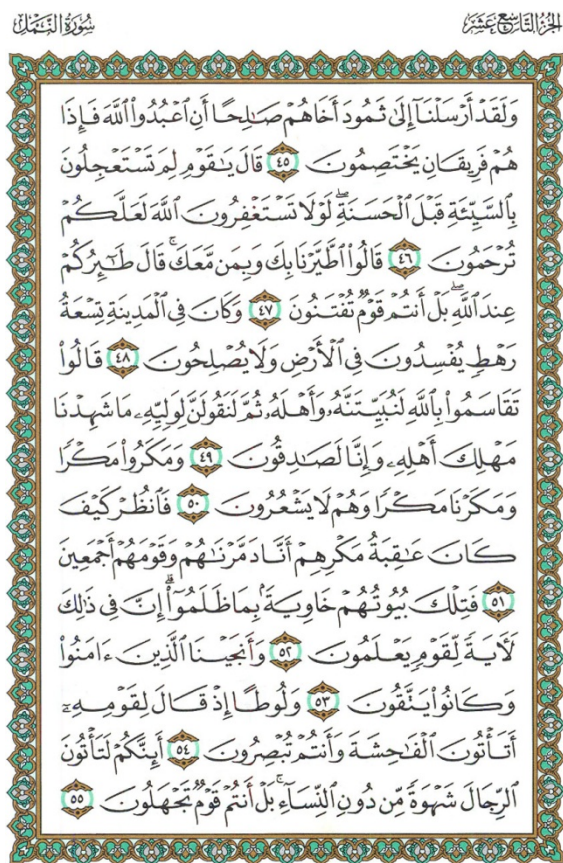 الجزء التاسع عشر
سورة النمل
وَلَقَدْ أَرْسَلْنَآ إِلَىٰ ثَمُودَ أَخَاهُمْ صَـٰلِحًا أَنِ ٱعْبُدُوا۟ ٱللَّهَ فَإِذَا
هُمْ فَرِيقَانِ يَخْتَصِمُونَ ٤٥ قَالَ يَـٰقَوْمِ لِمَ تَسْتَعْجِلُونَ
بِٱلسَّيِّئَةِ قَبْلَ ٱلْحَسَنَةِ ۖ لَوْلَا تَسْتَغْفِرُونَ ٱللَّهَ لَعَلَّكُمْ
تُرْحَمُونَ ٤٦ قَالُوا۟ ٱطَّيَّرْنَا بِكَ وَبِمَن مَّعَكَ ۚ قَالَ طَـٰٓئِرُكُمْ
عِندَ ٱللَّهِ ۖ بَلْ أَنتُمْ قَوْمٌ تُفْتَنُونَ ٤٧ وَكَانَ فِى ٱلْمَدِينَةِ تِسْعَةُ
رَهْطٍ يُفْسِدُونَ فِى ٱلْأَرْضِ وَلَا يُصْلِحُونَ ٤٨ قَالُوا۟
تَقَاسَمُوا۟ بِٱللَّهِ لَنُبَيِّتَنَّهُۥ وَأَهْلَهُۥ ثُمَّ لَنَقُولَنَّ لِوَلِيِّهِۦ مَا شَهِدْنَا
مَهْلِكَ أَهْلِهِۦ وَإِنَّا لَصَـٰدِقُونَ ٤٩ وَمَكَرُوا۟ مَكْرًا
وَمَكَرْنَا مَكْرًا وَهُمْ لَا يَشْعُرُونَ ٥٠ فَٱنظُرْ كَيْفَ
كَانَ عَـٰقِبَةُ مَكْرِهِمْ أَنَّا دَمَّرْنَـٰهُمْ وَقَوْمَهُمْ أَجْمَعِينَ
٥١ فَتِلْكَ بُيُوتُهُمْ خَاوِيَةًۢ بِمَا ظَلَمُوٓا۟ ۗ إِنَّ فِى ذَٰلِكَ
لَـَٔايَةً لِّقَوْمٍ يَعْلَمُونَ ٥٢ وَأَنجَيْنَا ٱلَّذِينَ ءَامَنُوا۟
وَكَانُوا۟ يَتَّقُونَ ٥٣ وَلُوطًا إِذْ قَالَ لِقَوْمِهِۦٓ
أَتَأْتُونَ ٱلْفَـٰحِشَةَ وَأَنتُمْ تُبْصِرُونَ ٥٤ أَئِنَّكُمْ لَتَأْتُونَ
ٱلرِّجَالَ شَهْوَةً مِّن دُونِ ٱلنِّسَآءِ ۚ بَلْ أَنتُمْ قَوْمٌ تَجْهَلُونَ ٥٥